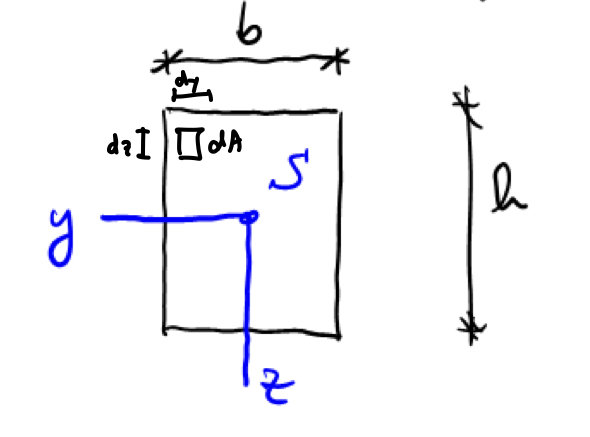 b
dy
dz dA
S
h
y
z